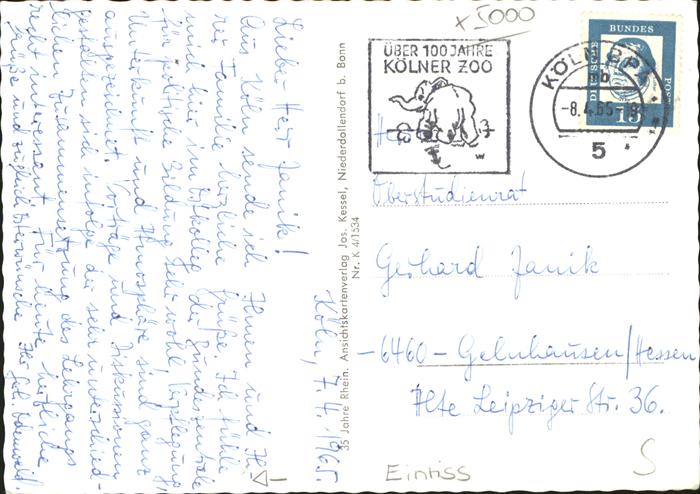 x 5000
ÜBER 100 JAHRE
KÖLNER ZOO
KÖLN BPA
mb
-8.4.65-
5
DEUTSCHE
BUNDES
POST
15
Herrn
Oberstudienrat
Gerhard Janik
-6460- Gelnhausen/Hessen
Alte Leipziger Str. 36.
Eintiss
S
35 Jahre Rhein. Ansichtskartenverlag Jos. Kessel, Niederdollendorf b. Bonn
Nr. K 4/1534
Köln, 7.4.1965
Lieber Herr Janik!
Aus Köln sende ich Ihnen und Ih-
rer Familie herzliche Grüße. Ich fühle
mich hier im Ostkolleg der Bundeszentrale
für politische Bildung sehr wohl. Verpflegung,
Unterkunft und Atmosphäre sind ganz
ausgezeichnet. Vorträge und Diskussionen
gestalten sich infolge der sehr unterschied-
lichen Zusammensetzung des Lehrgangs
recht interessant. Für heute herzliche
Grüße und zugleich Osterwünsche Ihr